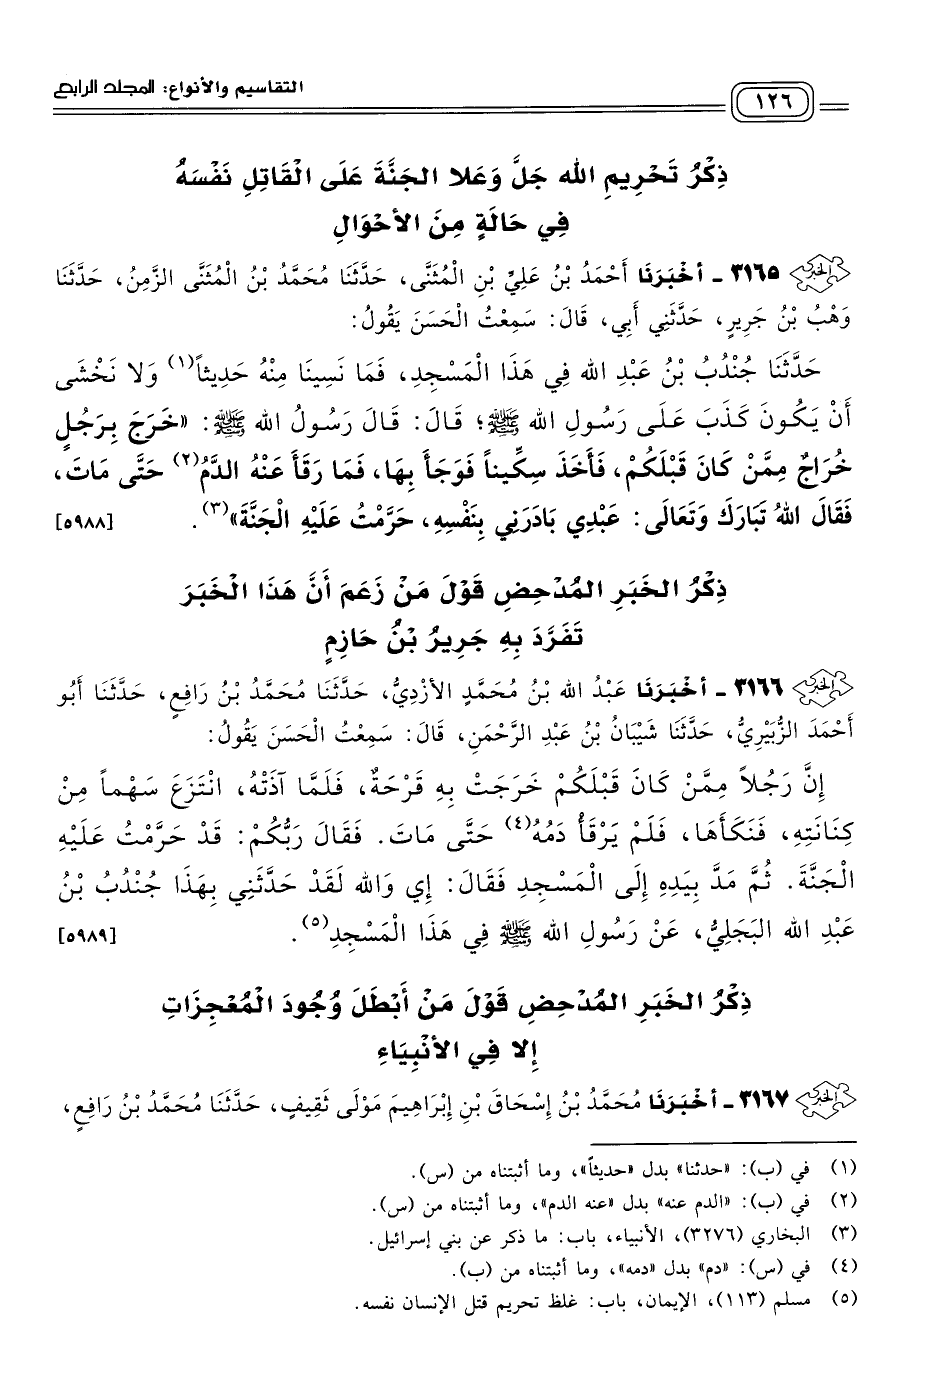 التقاسيم والأنواع: المجلد الرابع
١٢٦
ذِكْرُ تَحْرِيمِ الله جَلَّ وَعَلا الجَنَّةَ عَلَى الْقَاتِلِ نَفْسَهُ
فِي حَالَةٍ مِنَ الأَحْوَالِ
الخبر ٣١٦٥ - أَخْبَرَنَا أَحْمَدُ بْنُ عَلِيِّ بْنِ الْمُثَنَّى، حَدَّثَنَا مُحَمَّدُ بْنُ الْمُثَنَّى الزَّمِنُ، حَدَّثَنَا
وَهْبُ بْنُ جَرِيرٍ، حَدَّثَنِي أَبِي، قَالَ: سَمِعْتُ الْحَسَنَ يَقُولُ:
حَدَّثَنَا جُنْدُبُ بْنُ عَبْدِ الله فِي هَذَا الْمَسْجِدِ، فَمَا نَسِينَا مِنْهُ حَدِيثاً(١) وَلا نَخْشَى
أَنْ يَكُونَ كَذَبَ عَلَى رَسُولِ الله ﷺ؛ قَالَ: قَالَ رَسُولُ الله ﷺ: «خَرَجَ بِرَجُلٍ
خُرَاجٌ مِمَّنْ كَانَ قَبْلَكُمْ، فَأَخَذَ سِكِّيناً فَوَجَأَ بِهَا، فَمَا رَقَأَ عَنْهُ الدَّمُ(٢) حَتَّى مَاتَ،
فَقَالَ اللهُ تَبَارَكَ وَتَعَالَى: عَبْدِي بَادَرَنِي بِنَفْسِهِ، حَرَّمْتُ عَلَيْهِ الْجَنَّةَ»(٣). [٥٩٨٨]
ذِكْرُ الخَبَرِ المُدْحِضِ قَوْلَ مَنْ زَعَمَ أَنَّ هَذَا الْخَبَرَ
تَفَرَّدَ بِهِ جَرِيرُ بْنُ حَازِمٍ
الخبر ٣١٦٦ - أَخْبَرَنَا عَبْدُ الله بْنُ مُحَمَّدٍ الأَزْدِيُّ، حَدَّثَنَا مُحَمَّدُ بْنُ رَافِعٍ، حَدَّثَنَا أَبُو
أَحْمَدَ الزُّبَيْرِيُّ، حَدَّثَنَا شَيْبَانُ بْنُ عَبْدِ الرَّحْمَنِ، قَالَ: سَمِعْتُ الْحَسَنَ يَقُولُ:
إِنَّ رَجُلاً مِمَّنْ كَانَ قَبْلَكُمْ خَرَجَتْ بِهِ قَرْحَةٌ، فَلَمَّا آذَتْهُ، انْتَزَعَ سَهْماً مِنْ
كِنَانَتِهِ، فَنَكَأَهَا، فَلَمْ يَرْقَأْ دَمُهُ(٤) حَتَّى مَاتَ. فَقَالَ رَبُّكُمْ: قَدْ حَرَّمْتُ عَلَيْهِ
الْجَنَّةَ. ثُمَّ مَدَّ بِيَدِهِ إِلَى الْمَسْجِدِ فَقَالَ: إِي وَالله لَقَدْ حَدَّثَنِي بِهَذَا جُنْدُبُ بْنُ
عَبْدِ الله البَجَلِيُّ، عَنْ رَسُولِ الله ﷺ فِي هَذَا الْمَسْجِدِ(٥). [٥٩٨٩]
ذِكْرُ الخَبَرِ المُدْحِضِ قَوْلَ مَنْ أَبْطَلَ وُجُودَ الْمُعْجِزَاتِ
إِلا فِي الأَنْبِيَاءِ
الخبر ٣١٦٧ - أَخْبَرَنَا مُحَمَّدُ بْنُ إِسْحَاقَ بْنِ إِبْرَاهِيمَ مَوْلَى ثَقِيفٍ، حَدَّثَنَا مُحَمَّدُ بْنُ رَافِعٍ،
(١) في (ب): «حدثنا» بدل «حديثاً»، وما أثبتناه من (س).
(٢) في (ب): «الدم عنه» بدل «عنه الدم»، وما أثبتناه من (س).
(٣) البخاري (٣٢٧٦)، الأنبياء، باب: ما ذكر عن بني إسرائيل.
(٤) في (س): «دم» بدل «دمه»، وما أثبتناه من (ب).
(٥) مسلم (١١٣)، الإيمان، باب: غلظ تحريم قتل الإنسان نفسه.